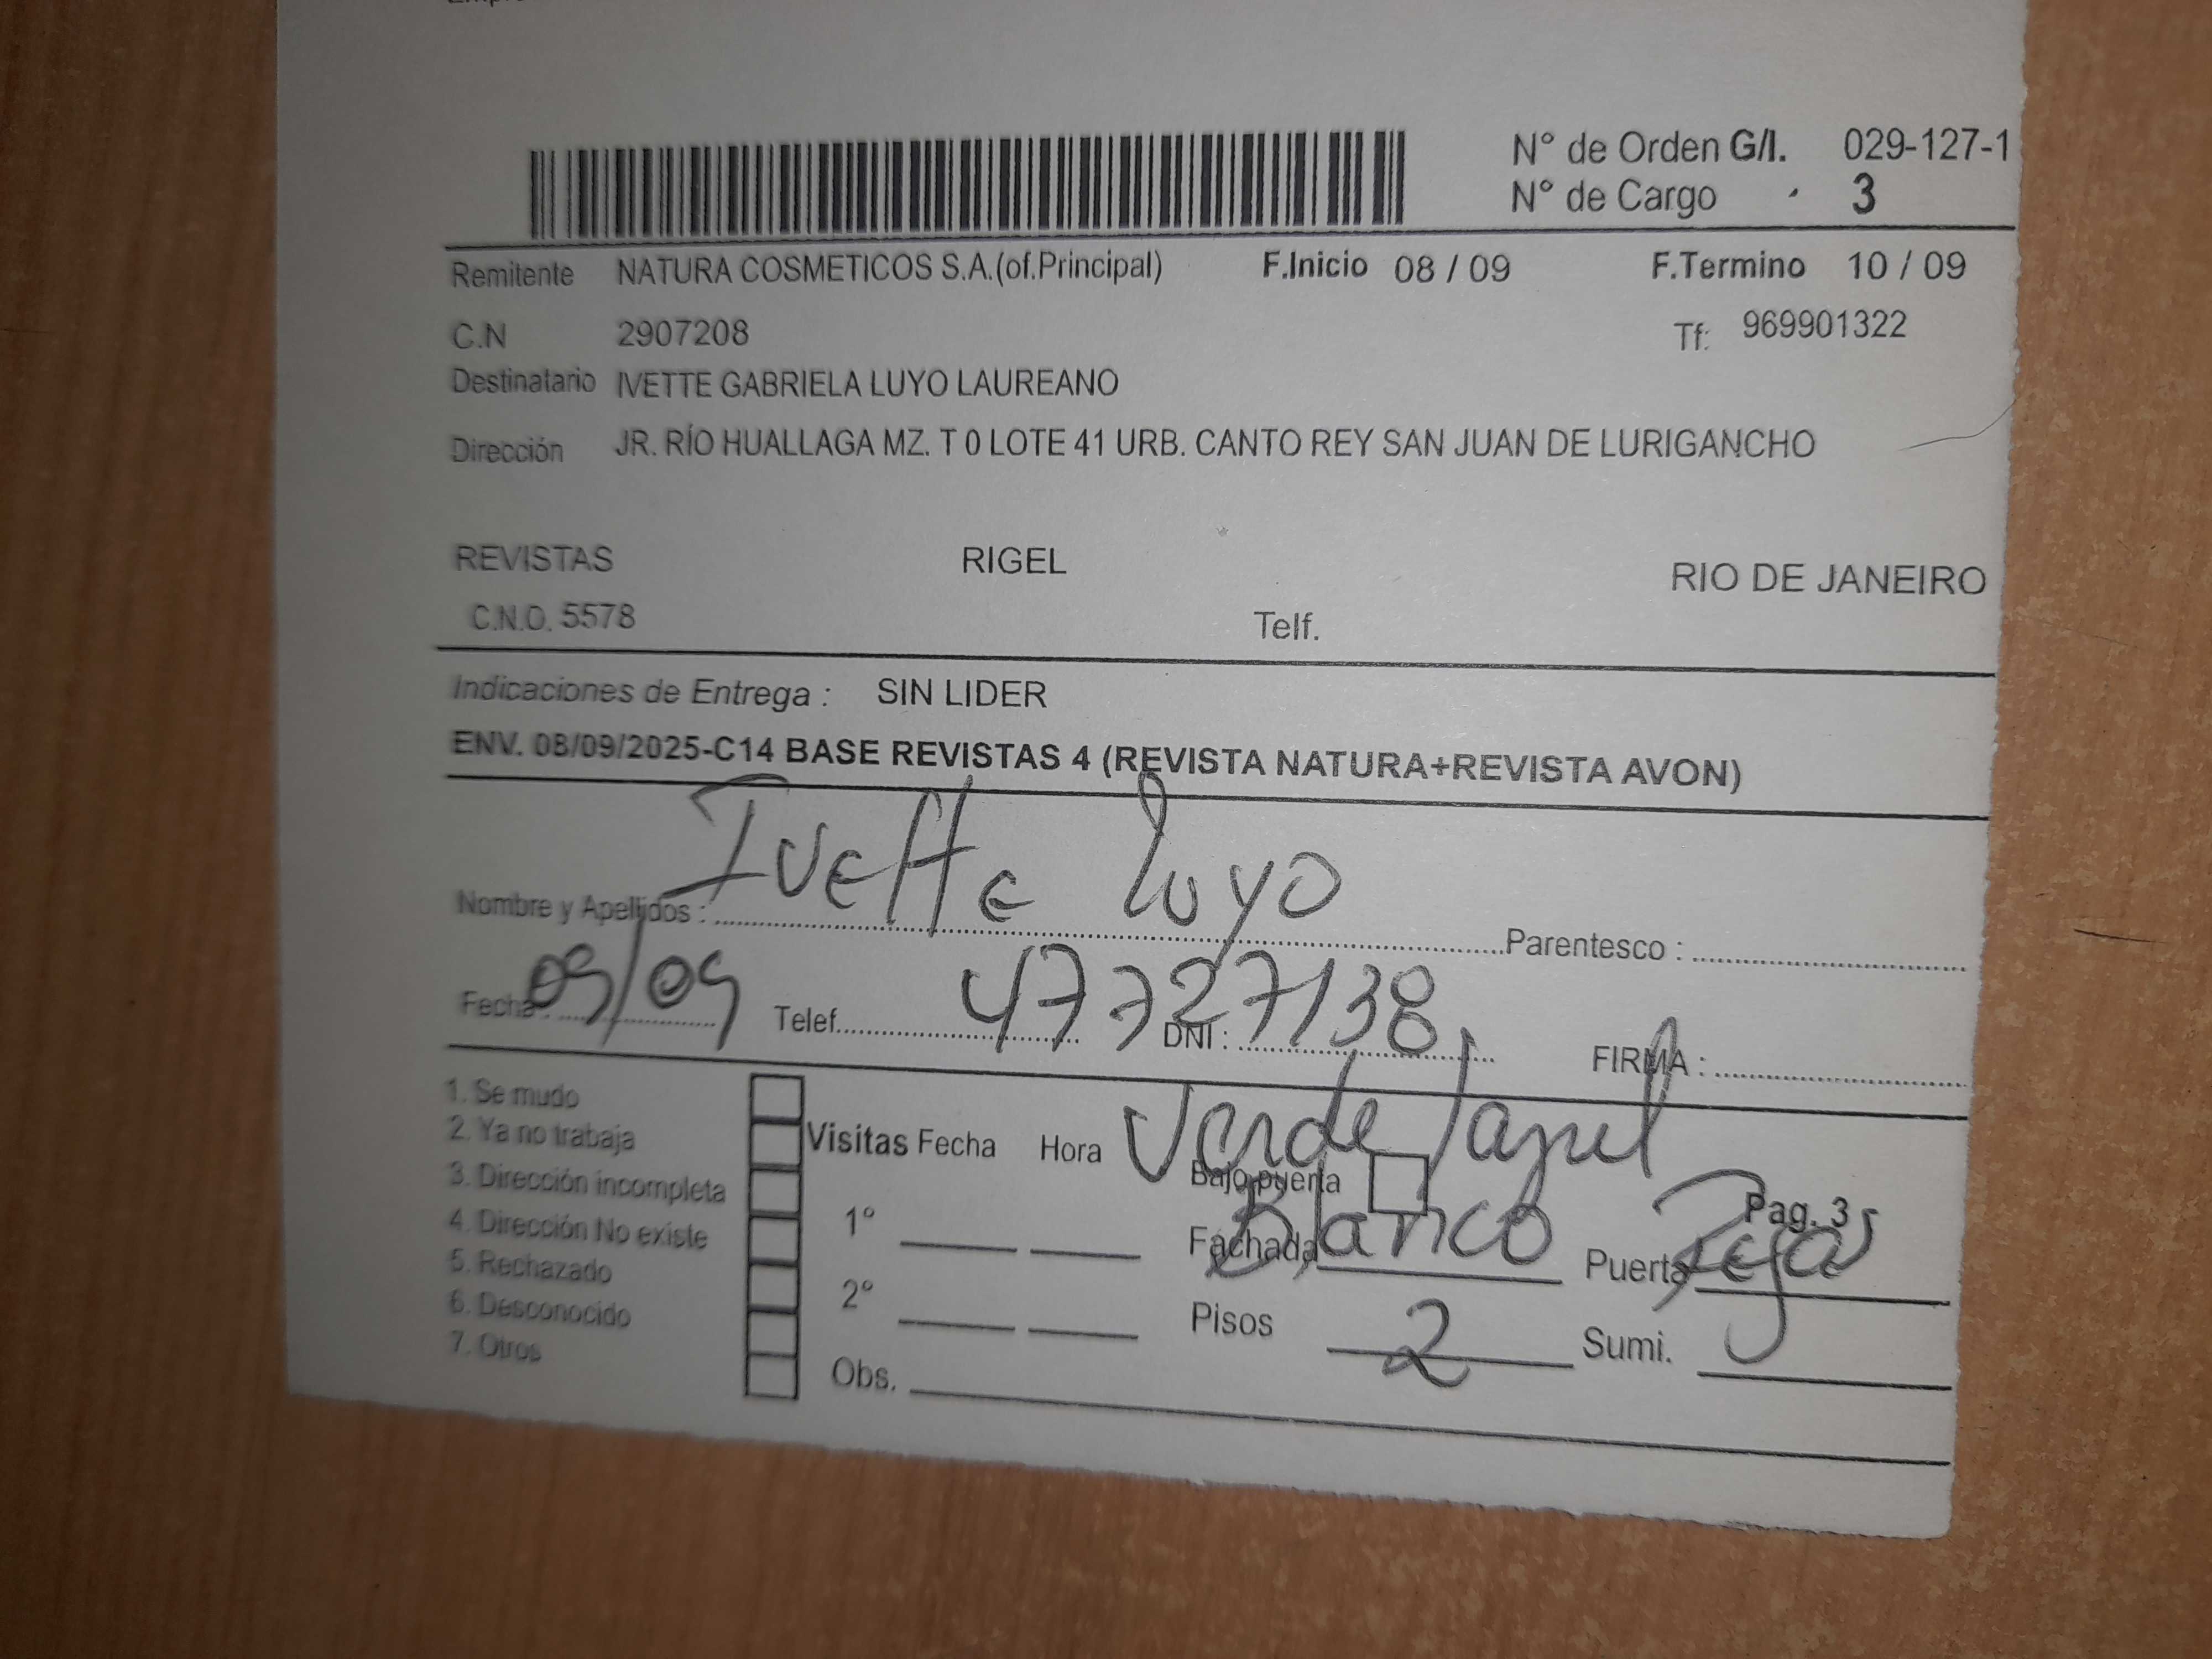 N° de Orden G/I. 029-127-1
N° de Cargo 3
Remitente NATURA COSMETICOS S.A.(of.Principal) F.Inicio 08 / 09 F.Termino 10 / 09
C.N 2907208 Tf: 969901322
Destinatario IVETTE GABRIELA LUYO LAUREANO
Dirección JR. RÍO HUALLAGA MZ. T 0 LOTE 41 URB. CANTO REY SAN JUAN DE LURIGANCHO
REVISTAS RIGEL RIO DE JANEIRO
C.N.O. 5578 Telf.
Indicaciones de Entrega : SIN LIDER
ENV. 08/09/2025-C14 BASE REVISTAS 4 (REVISTA NATURA+REVISTA AVON)
Nombre y Apellidos : Ivette Luyo Parentesco :
Fecha : 09/09 Telef. DNI : 47727138 FIRMA :
1. Se mudo
2. Ya no trabaja
3. Dirección incompleta
4. Dirección No existe
5. Rechazado
6. Desconocido
7. Otros
Visitas Fecha Hora
1°
2°
Obs.
Verde / azul
Bajo puerta
Pag. 3
Fachada Blanco Puerta Reja
Pisos 2 Sumi.